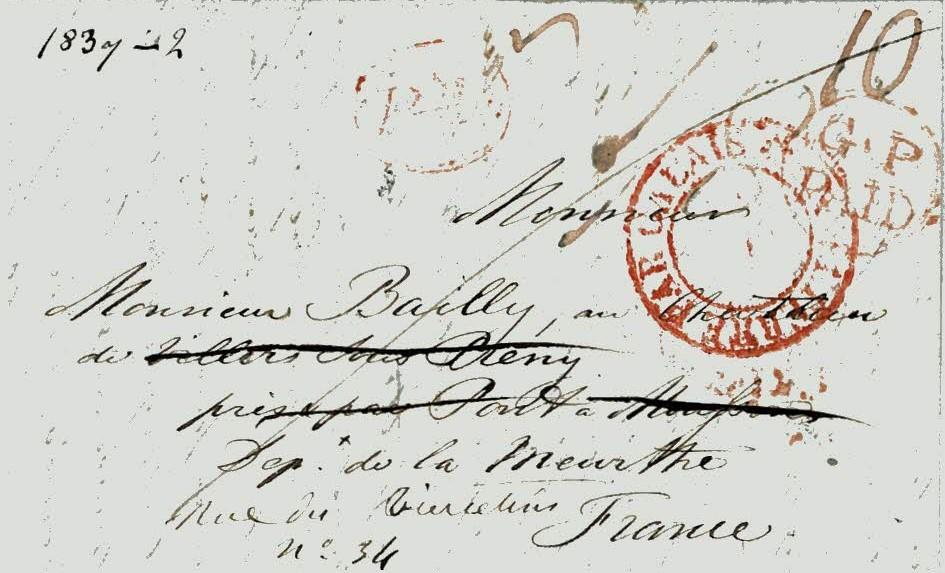 1839-2
10
G. P
PAID
Monsieur
Monsieur Bailly, au Chateau
de Villers sous Preny
près par Pont à Mousson
Dep.t de la Meurthe
Rue du
France
n° 34
PAR CALAIS